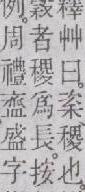 釋艸曰。粢稷也。
穀者稷爲長。按
例。周禮齍盛字